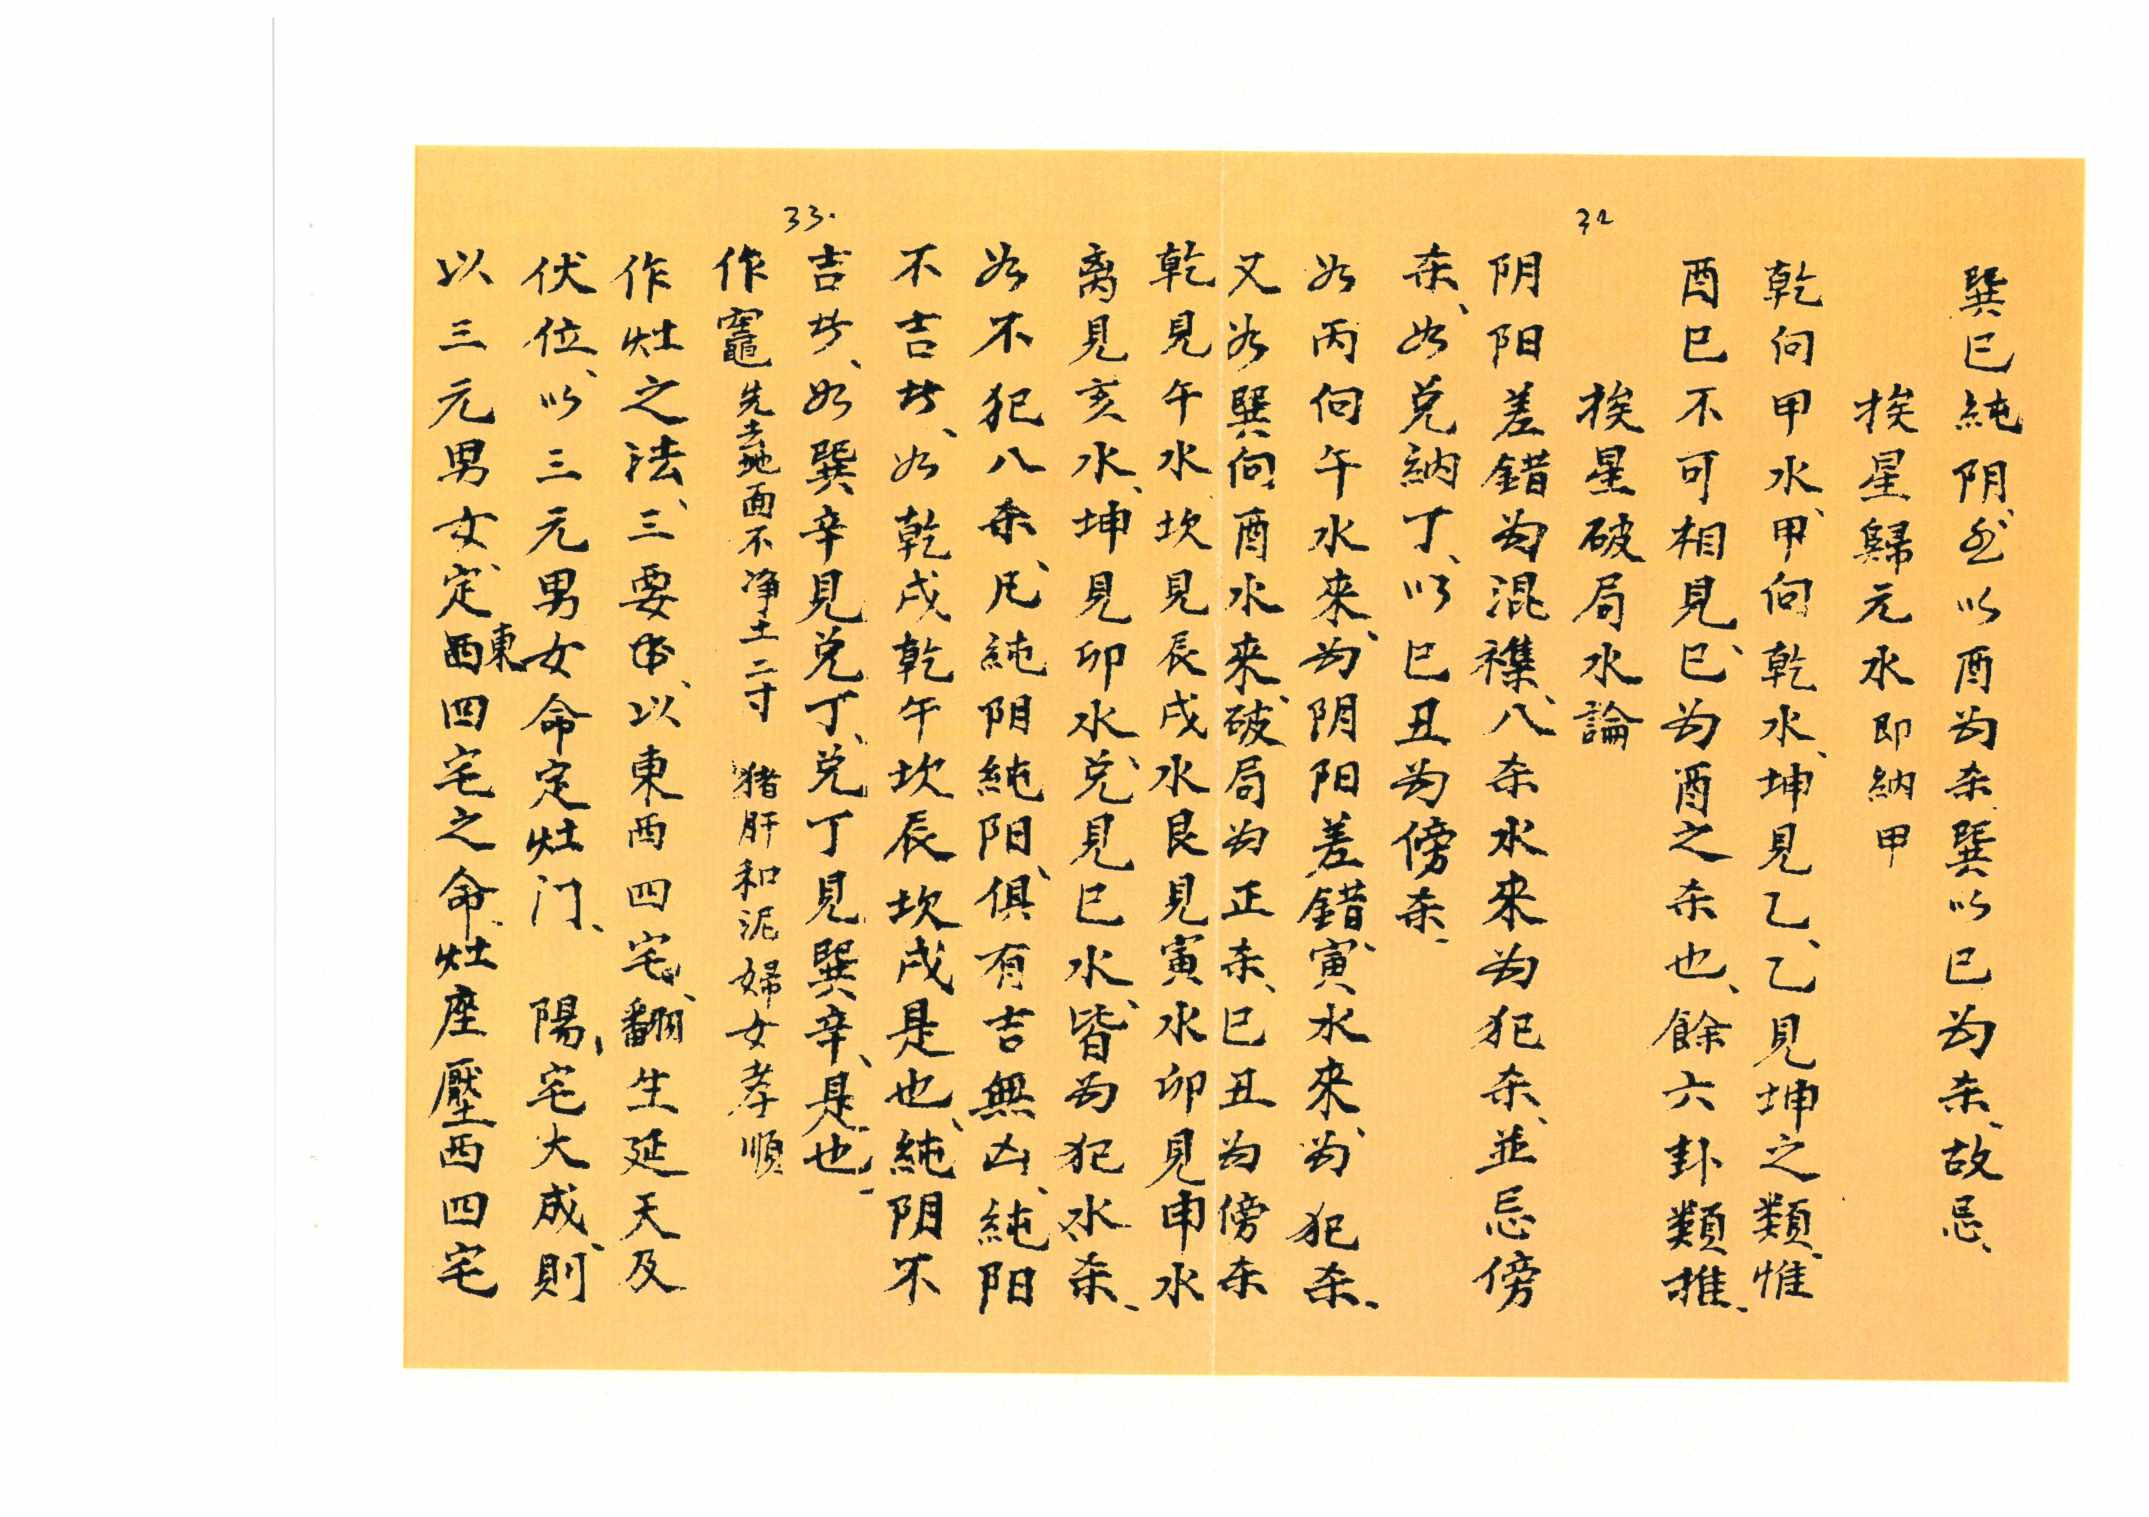 32
巽巳純阴、
以酉为杀、巽以巳为杀、故忌、
挨星歸元水即納甲
乾向甲水、甲向乾水、坤見乙、乙見坤之類、惟
酉巳不可相見、巳为酉之杀也、餘六卦類推、
挨星破局水論
阴阳差錯为混襍、八杀水来为犯杀、並忌傍
杀、如兑納丁、以巳丑为傍杀、
如丙向午水来、为阴阳差錯、寅水来、为犯杀、
又如巽向酉水来、破局为正杀、巳丑为傍杀
33.
乾見午水、坎見辰戌水艮見寅水卯見申水
离見亥水、坤見卯水、兑見巳水、皆为犯水杀、
如不犯八杀、凡純阴純阳、俱有吉無凶、純阳
不吉艹、如乾戌乾午坎辰坎戌是也、純阴不
吉艹、如巽辛見兑丁、兑丁見巽辛、是也、
作竈先去地面不净土二寸 猪肝和泥婦女孝順
作灶之法、三要事、以東西四宅、翻生延天及
伏位、以三元男女命定灶门、 陽宅大成、則
以三元男女、定東西四宅之命、灶座壓西四宅